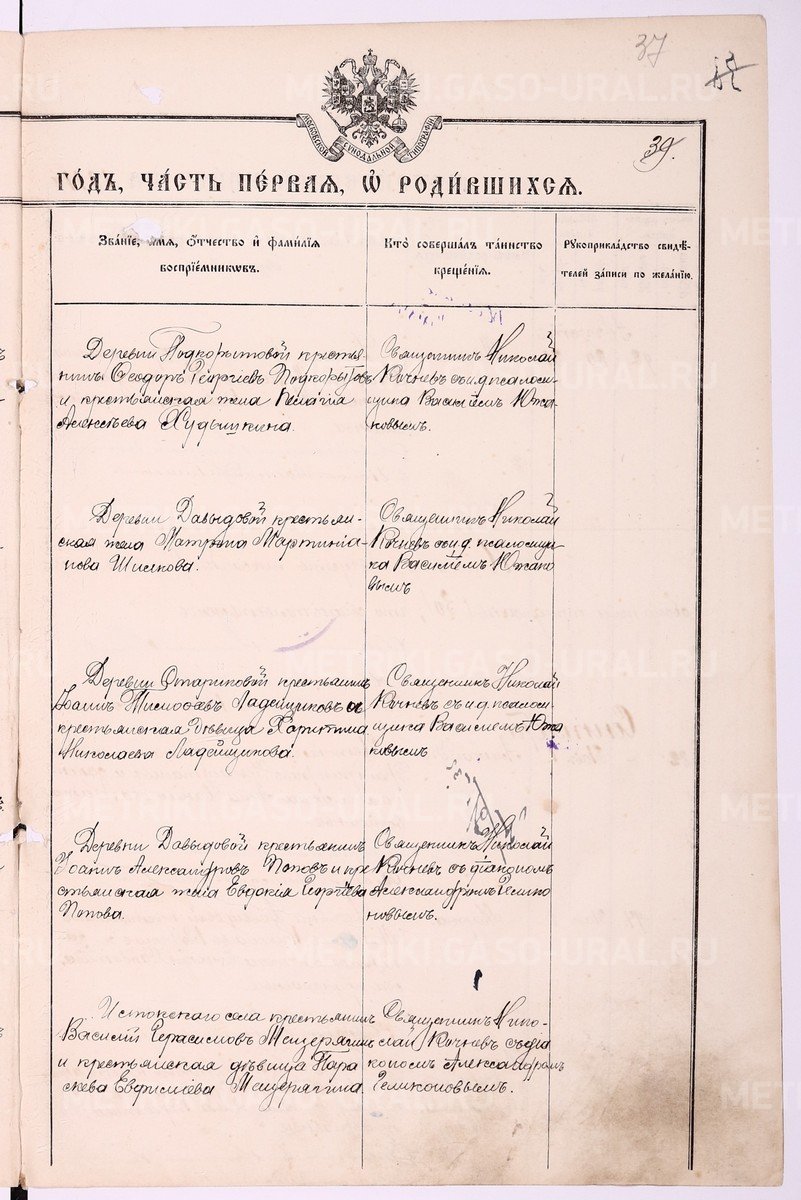 37
39.
МОСКОВСКОЙ СѴНОДАЛЬНОЙ ТИПОГРАФІИ
ГОДЪ, ЧАСТЬ ПЕРВАЯ, Ѿ РОДИВШИХСЯ.
Званіе, имя, отчество и фамилія
воспріемниковъ.
Кто совершалъ таинство
крещенія.
Рукоприкладство свидѣ-
телей записи по желанію.
Деревни Подкорытовой крестья-
нинъ Ѳеодоръ Георгіевъ Подкорытовъ
и крестьянская жена Пелагія
Алексѣева Худышкина.
Священникъ Николай
Кочневъ съ и. д. псалом-
щика Василіемъ Южа-
ковымъ.
Деревни Давыдовой крестьян-
ская жена Матрона Мартині-
анова
Священникъ Николай
Кочневъ съ и. д. псаломщи-
ка Василіемъ Южако-
вымъ
Деревни Стариковой крестьянинъ
Іоаннъ Тимоѳеевъ Ладейщиковъ и
крестьянская дѣвица Харитина
Николаева Ладейщикова.
Священникъ Николай
Кочневъ съ и. д. псалом-
щика Василіемъ Южа-
ковымъ
Деревни Давыдовой крестьянинъ
Іоаннъ Александровъ Поповъ и кре-
стьянская жена Евдокія Георгіева
Попова.
Священникъ Николай
Кочневъ съ діакономъ
Александромъ Гелико-
новымъ.
Истокскаго села крестьянинъ
Василій Герасимовъ Мещерягинъ
и крестьянская дѣвица Пара-
скева Евфиміева Мещерягина.
Священникъ Нико-
лай Кочневъ съ діа-
кономъ Александромъ
Геликоновымъ.
METRIKI.GASO-URAL.RU